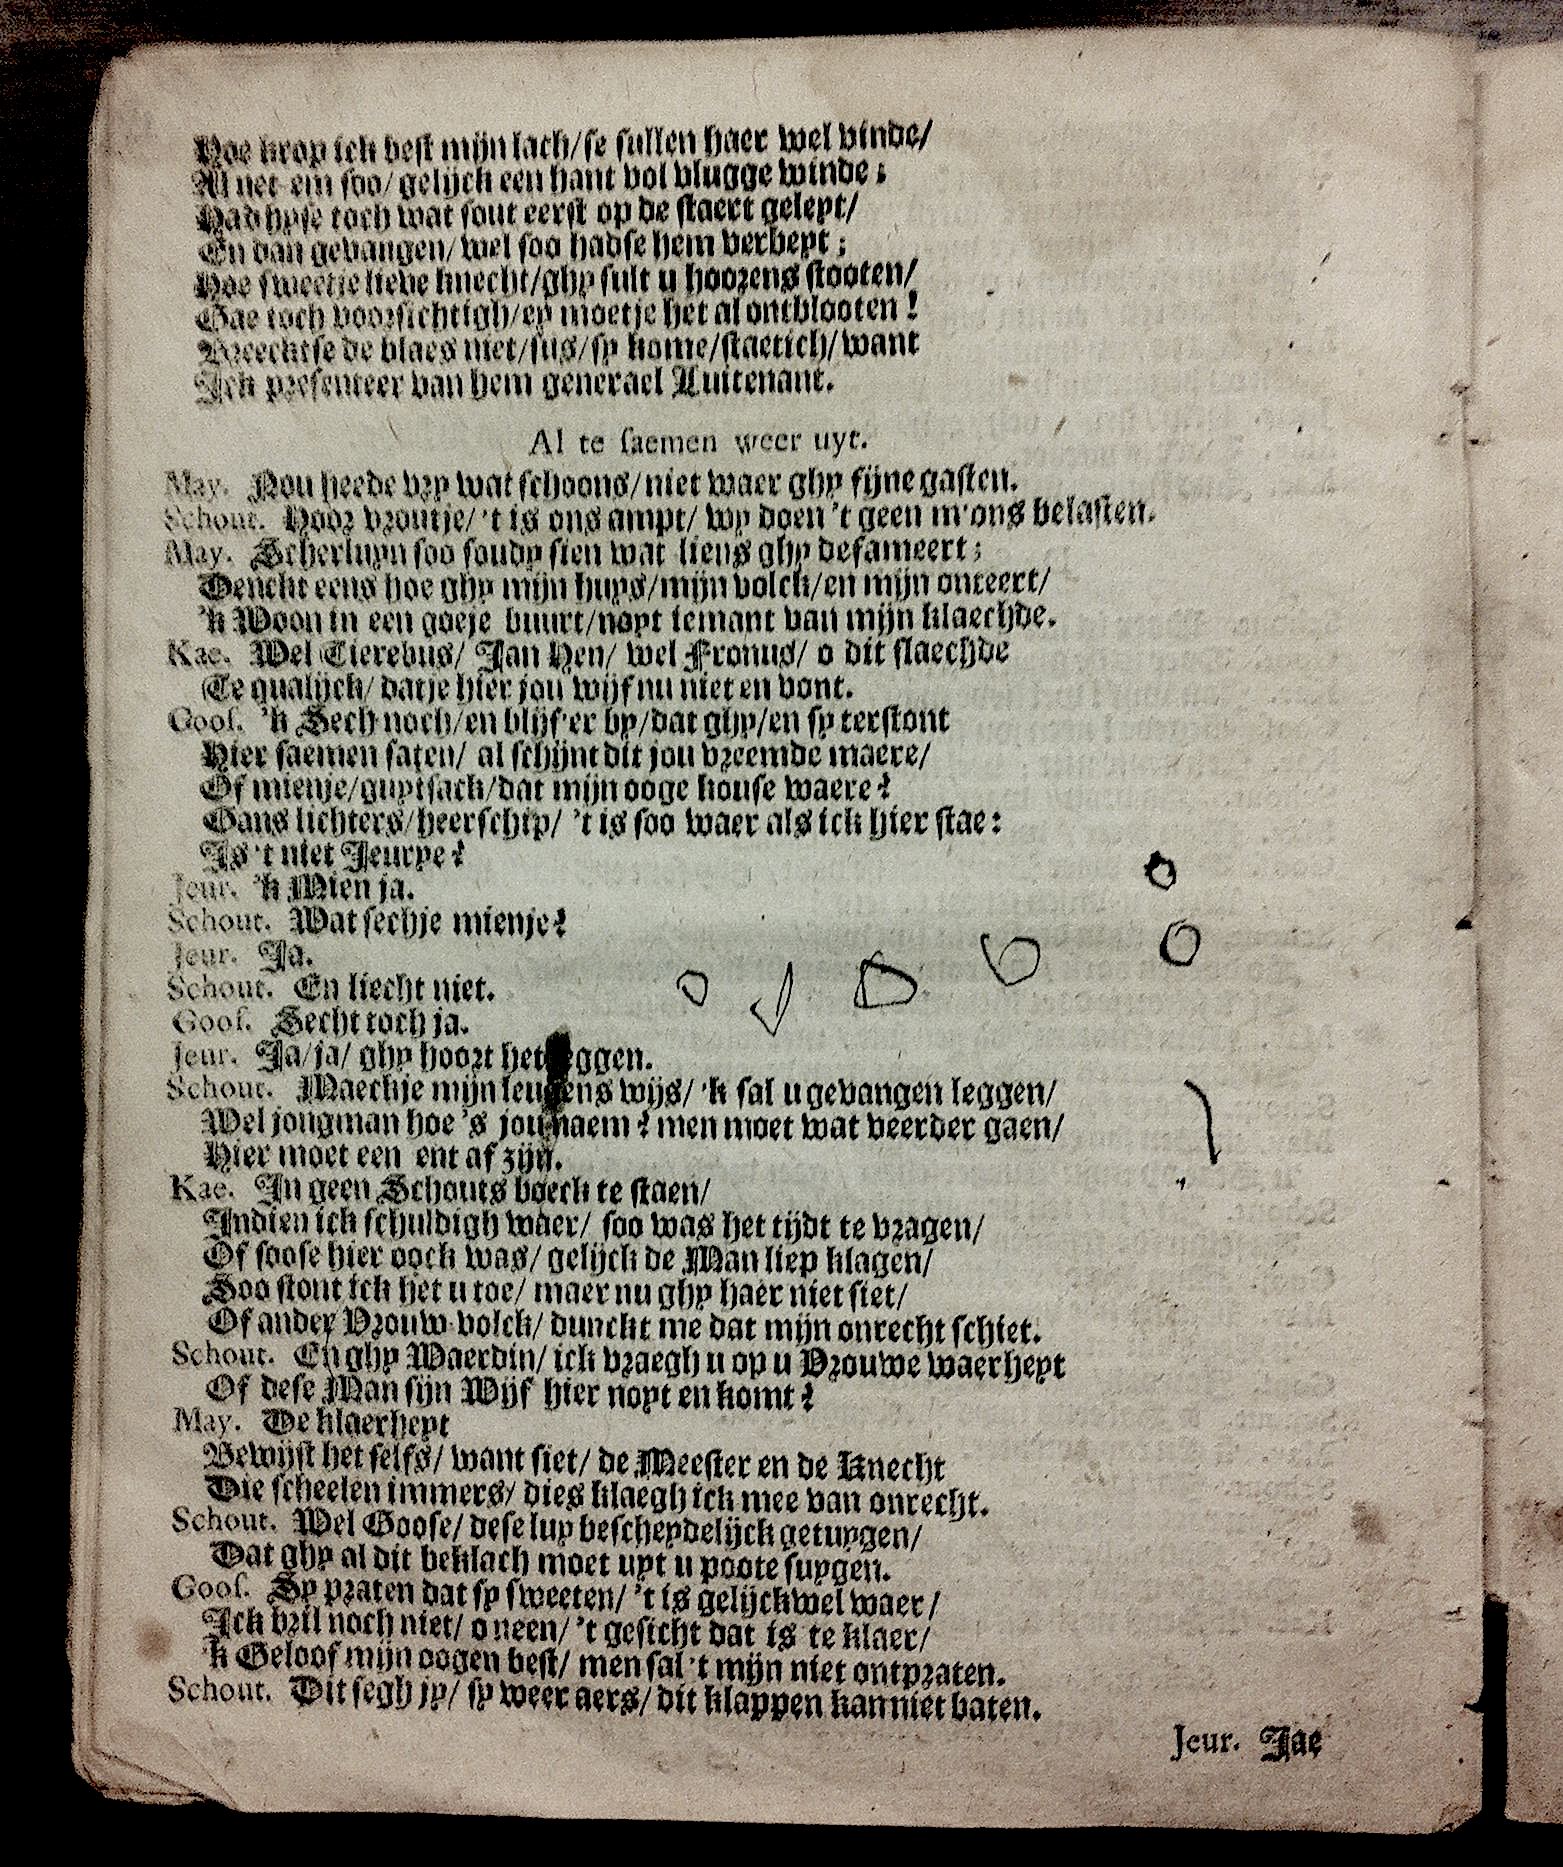 Hoe krop ick best mijn lach/se sullen haer wel vinde/
Al net ein soo/ gelijck een hant vol vlugge winde;
Had hyse toch wat sout eerst op de staert geleyt/
En dan gevangen/ wel soo hadse hem verbeyt;
Hoe sweetje lieve knecht/ghy sult u hoorens stooten/
Gae toch voorsichtigh/ey moetje het al ontblooten!
Breecktse de blaes niet/sus/sy kome/staetich/want
Ick presenteer van hem generael Luitenant.
Al te saemen weer uyt.
May. Nou heede vry wat schoons/niet waer ghy fijne gasten.
Schout. Hoor vroutje/ 't is ons ampt/ wy doen 't geen m'ons belasten.
May. Scherluyn soo soudy sien wat liens ghy defameert;
Denckt eens hoe ghy mijn huys/mijn volck/en mijn onteert/
'k Woon in een goeje buurt/noyt iemant van mijn klaechde.
Kae. Wel Cierebus/ Jan Hen/ wel Fronus/ o dit slaechde
Te qualijck/ datje hier jou wijf nu niet en vont.
Goos. 'k Sech noch/en blijf'er by/dat ghy/en sy terstont
Hier saemen saten/ al schijnt dit jou vreemde maere/
Of mienje/guytsack/dat mijn ooge kouse waere?
Gans lichters/heerschip/ 't is soo waer als ick hier stae:
Is 't niet Jeurye?
Jeur. 'k Mien ja.
Schout. Wat sechje mienje?
Jeur. Ja.
Schout. En liecht niet.
Goos. Secht toch ja.
Jeur. Ja/ja/ ghy hoort het seggen.
Schout. Maeckje mijn leugens wijs/ 'k sal u gevangen leggen/
Wel jongman hoe 's jou naem? men moet wat veerder gaen/
Hier moet een ent af zijn.
Kae. In geen Schouts boeck te staen/
Indien ick schuldigh waer/ soo was het tijdt te vragen/
Of soose hier oock was/ gelijck de Man liep klagen/
Soo stont ick het u toe/ maer nu ghy haer niet siet/
Of ander Vrouw-volck/ dunckt me dat mijn onrecht schiet.
Schout. En ghy Waerdin/ ick vraegh u op u Vrouwe waerheyt
Of dese Man sijn Wijf hier noyt en komt?
May. De klaerheyt
Bewijst het selfs/ want siet/ de Meester en de Knecht
Die scheelen immers/ dies klaegh ick mee van onrecht.
Schout. Wel Goose/ dese luy bescheydelijck getuygen/
Dat ghy al dit beklach moet uyt u poote suygen.
Goos. Sy praten dat sy sweeten/ 't is gelijckwel waer/
Ick bril noch niet/ o neen/ 't gesicht dat is te klaer/
'k Geloof mijn oogen best/ men sal 't mijn niet ontpraten.
Schout. Dit segh jy/ sy weer aers/ dit klappen kan niet baten.
Jeur. Jae